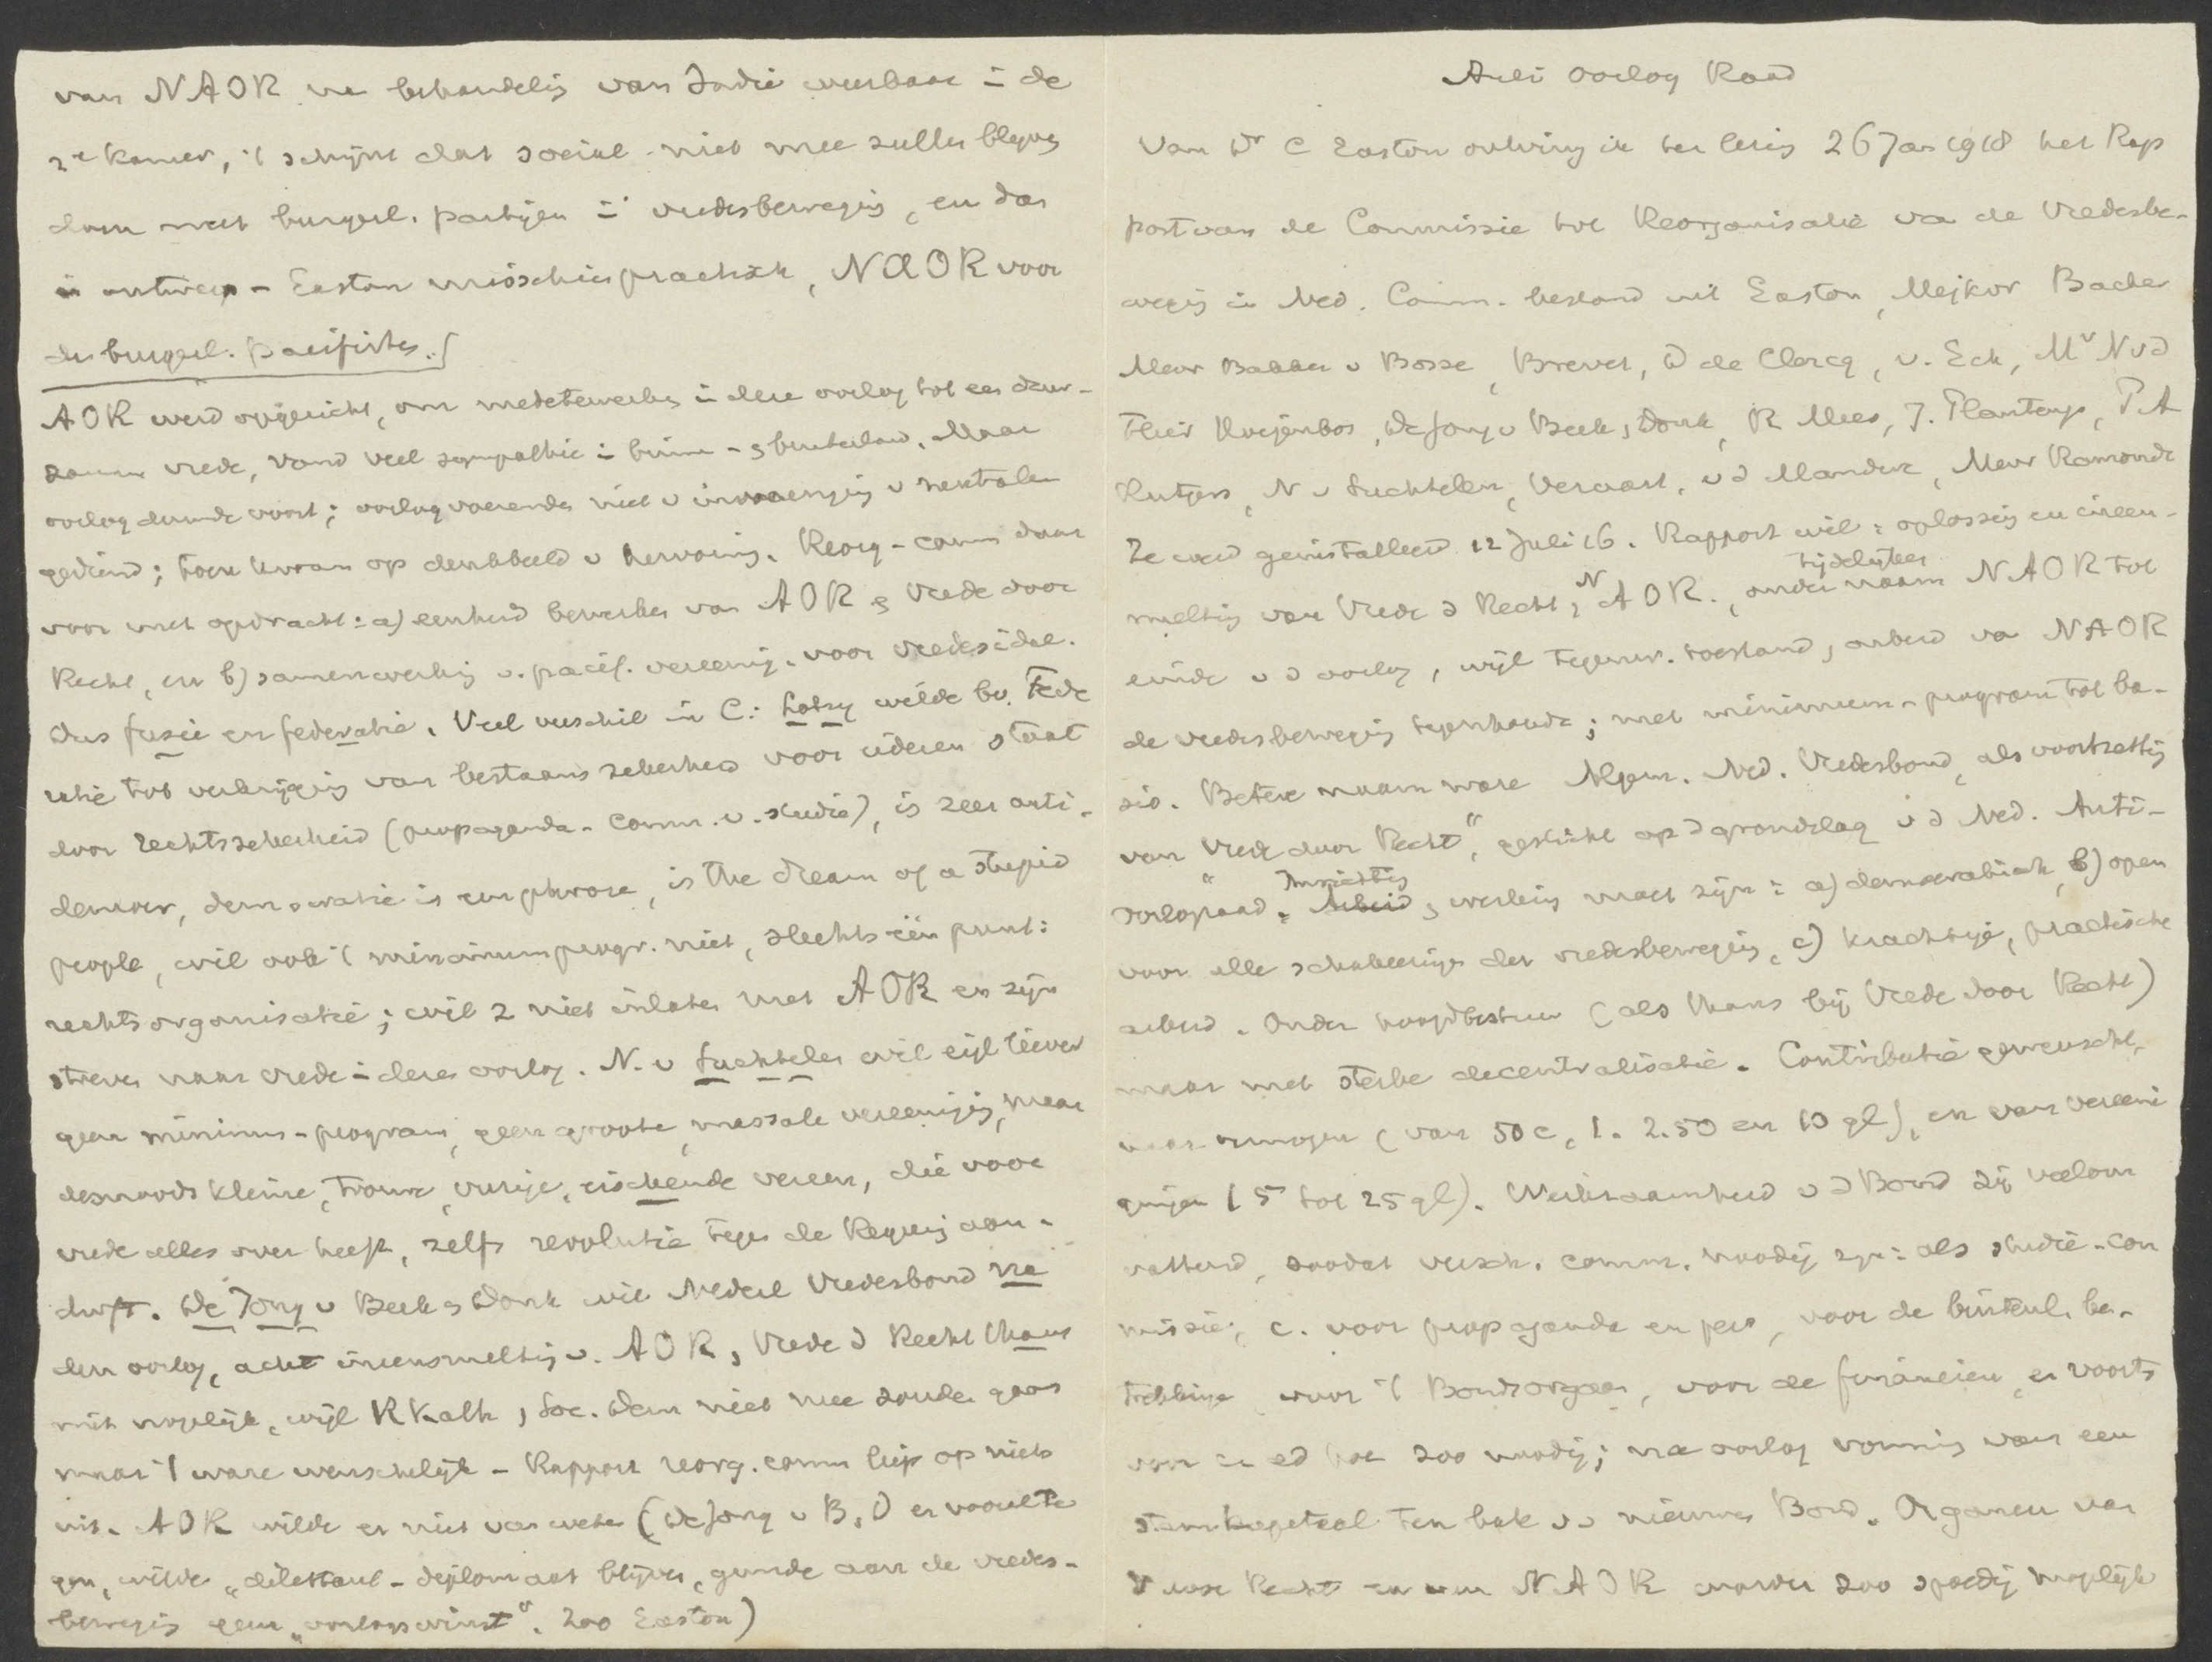 van NAOR na behandelig van Indië weerbaar in de
2e kamer, 't schijnt dat social. niet mee zullen blijven
doen met burgerl. partijen in vredesbewegig, en dan
is ontwerp - Easton misschien practisch, NAOR voor
de burgerl. pacifisten.
AOR werd opgericht, om medetewerken in deze oorlog tot een duur-
zamen vrede, vond veel sympathie in binnen- & buitenland. Maar
oorlog duurde voort; oorlogvoerenden niet v inmenging v neutralen
gediend; toen kwam op denkbeeld v hervormig. Reorg-comm daar
voor met opdracht: a) eenheid bewerken van AOR & Vrede door
Recht, en b) samenwerkig v. pacif. vereenig. voor vredesidee.
Dus fusie en federatie. Veel verschil in C: Lotsy wilde bv. Fede
ratie tot verkrijgig van bestaanszekerheid voor iederen staat
door rechtszekerheid (propaganda- comm. v. studie), is zeer anti-
democr, democratie is een phrase, is the dream of a stupid
people, wil ook 't minimumprogr. niet, slechts één punt:
rechtsorganisatie; wil z niet inlaten met AOR en zijn
streven naar vrede in deze oorlog. N. v Suchtelen wil eigl liever
geen minimum-program, geen groote, massale vereenigig, maar
desnoods kleine, trouwe, vurige, eischende vereen, die voor
vrede alles over heeft, zelfs revolutie tegen de Regerig aan-
durft. De Jong v Beek & Donk wil Nederl Vredesbond na
den oorlog, acht ineensmeltig v. AOR & Vrede d Recht thans
niet mogelijk, wijl RKath & Soc. Dem niet mee zouden gaan
maar 't ware wenschelijk - Rapport reorg. comm liep op niets
uit. AOR wilde er niet van weten (De Jong v B & D er voorulte
gen, wilde „dilettant-diplomaat blijven, gunde aan de vredes-
bewegig geen „oorlogswinst". Zoo Easton)
Anti Oorlog Raad
Van Dr C Easton ontving ik ter lezig 26 Jan 1918 het Rap
port van de Commissie tot Reorganisatie van de Vredesbe-
wegig in Ned. Comm. bestond uit Easton, Mejkvr Backer
Mevr Bakker v Bosse, Brevet, D de Clercq, v. Eck, Mr N v d
Flier Hooijenbos, De Jong v Beek & Donk, R Mees, J. Planteng, P.A
Rutgers, N v Suchtelen, Veraart, v d Mandere, Mevr Ramondt
Ze werd geinstalleerd 12 Juli 16. Rapport wil: oplossig en ineen-
smeltig van Vrede d Recht & N AOR., onder tijdelijken naam NAOR tot
einde v d oorlog, wijl tegenw. toestand & arbeid van NAOR
de vredesbewegig tegenhoudt; met minimum-program tot ba-
sis. Betere naam ware Algem. Ned. Vredesbond, als voortzettig
van „Vrede door Recht", gesticht op d grondslag v d Ned. Anti-
oorlograad. Inrichtig & werkig moet zijn: a) democratisch, b) open
voor alle schakeeringen der vredesbewegig, c) krachtige, practische
arbeid. Onder hoofdbestuur (als thans bij Vrede door Recht)
maar met sterke decentralisatie. Contributie gewenscht,
naar vermogen (van 50 c, 1. 2.50 en 10 gl), en van vereeni
gingen (5 tot 25 gl). Werkzaamheid v d Bond zij veelom
vattend, zoodat versch. comm. noodig zijn: als studie-com
missie, c. voor propaganda en pers, voor de buitenl. be-
trekkingen voor 't Bondsorgaan, voor de financien, en voorts
voor zoo noodig; na oorlog vormig van een
stamkapitaal ten bate v d nieuwen Bond. Organen van
V door Recht en van NAOR worden zoo spoedig mogelijk